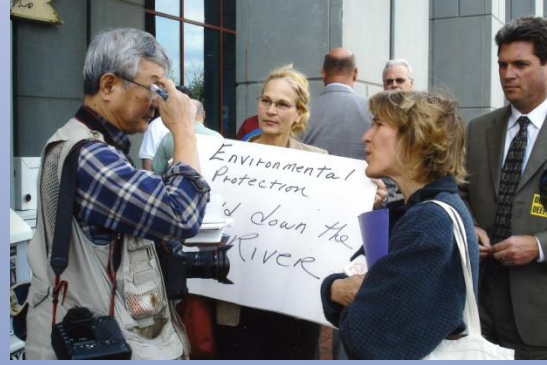 Environmental
Protection
'd down the
River